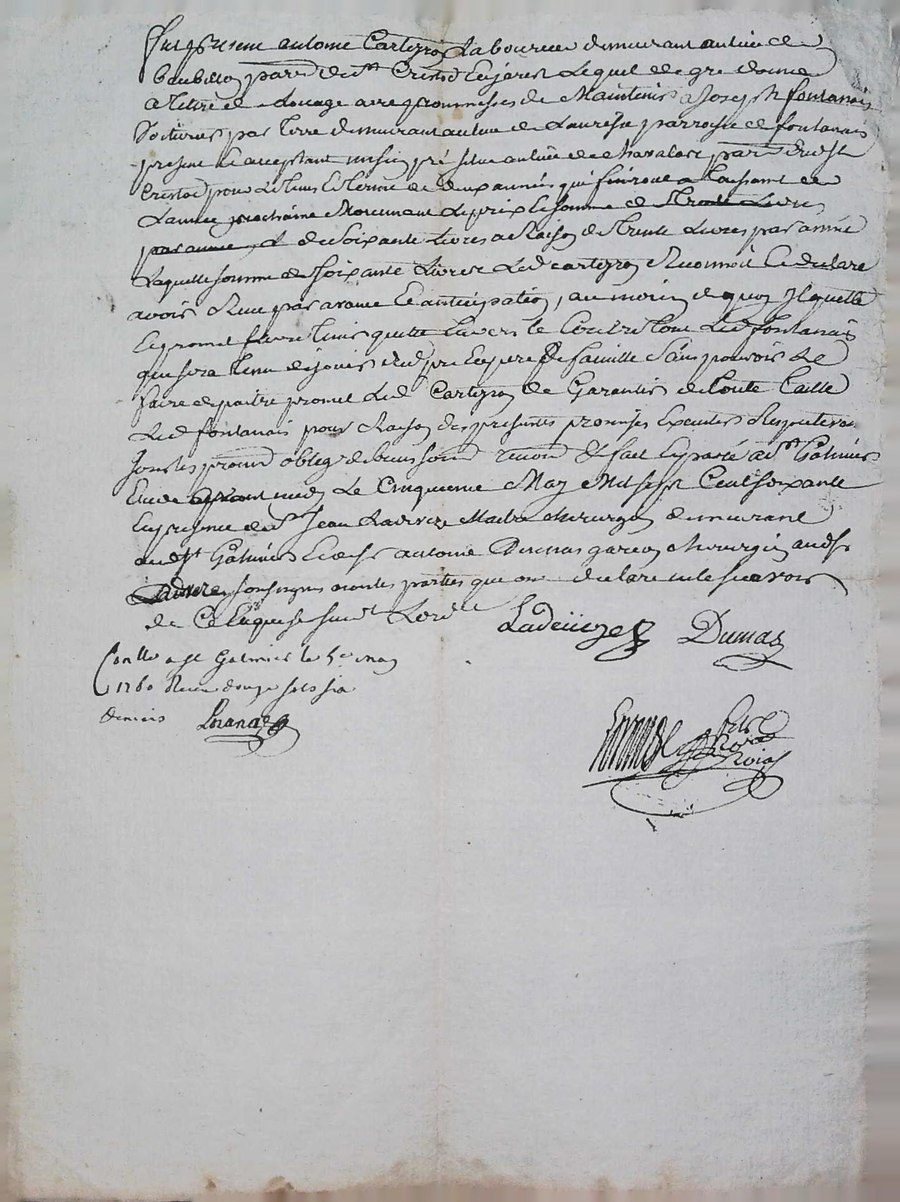 fut present antoine Carteyron Laboureur demeurant au lieu de
parr. de St Cristo En jarest Lequel de gre donne
a tittre de Louage avec promesses de Maintenir a Joseph fontanais
Voiturier par terre demeurant au lieu de parroisse de fontanais
present et acceptant un sien pré situé au lieu de chavaloir parr. dud. St
Cristo pour Le tems et terme de deux années qui finiront a La
L'année prochaine Moyennant Le prix et somme de trente Livres
par année et de soixante Livres a Raison de trente Livres par année
Laquelle somme de soixante Livres Led. carteyron Reconnoit et declare
avoir Reçue par avance et anticipation, au moien de quoy Il quitte
et promet faire tenir quitte Envers et Contre tous Led. fontanais
qui sera tenu de jouir dud. pre En pere de famille sans pouvoir Le
faire promet Led. Carteyron de Garantir de toute taille
Led. fontanais pour Raison des presentes promises Executer
promd. oblig. de biens soumd. renond. &. fait Et passé a St Galmier
Etude avant midy Le Cinquieme May Mil sept Cent soixante
En presence de Sr Jean Ladeveze Maitre chirurgien demeurant
aud. St Galmier Et de Sr antoine Dumas garçon chirurgien aud. St
Galmier soussignés non les parties qui ont declaré ne le sçavoir
de Ce Enquis et
Ladeveze Dumas
Conllé a St Galmier le 5e may
1760 Reçu douze sols six
deniers